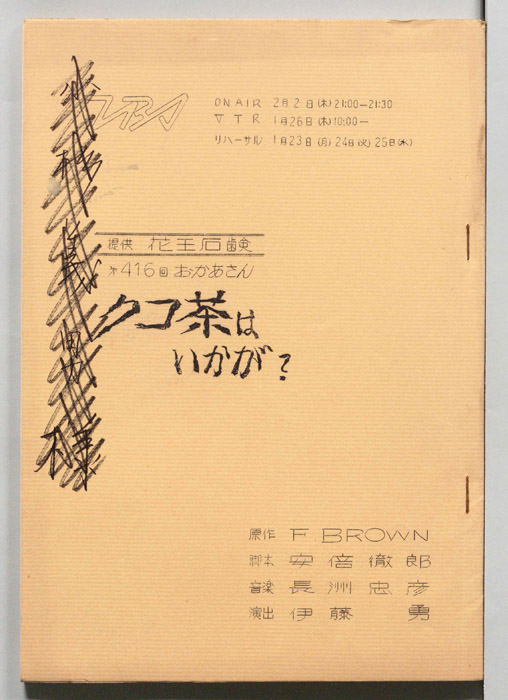 ON AIR 2月2日(木)21:00—21:30
VTR 1月26日(木)10:00—
リハーサル 1月23日(月)24日(火)25日(水)
提供 花王石鹸
第416回 おかあさん
クコ茶は
いかが?
原作 F BROWN
脚本 安倍徹郎
音楽 長洲忠彦
演出 伊藤 勇